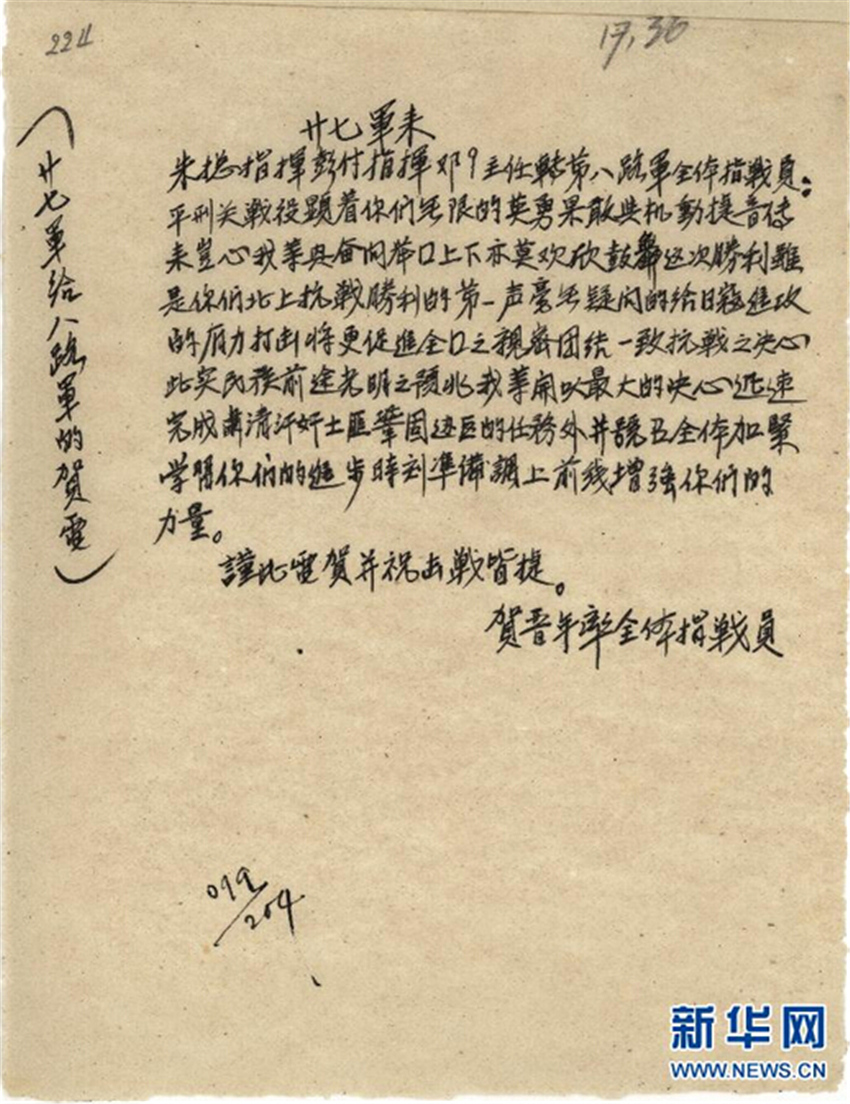 2211
17,36
(廿七軍给八路軍的贺電)
廿七軍来
朱总指揮彭付指揮邓 主任轉第八路軍全体指戰員:
平刑关戰役顕着你们无限的英勇果敢与机動捷音传
来 心我等兴奋问举口上下亦莫欢欣鼓舞这次勝利雖
是你们北上抗戰勝利的第一声毫无疑问的给日寇進攻
的有力打击将更促進全口之親密团结一致抗戰之决心
此实民族前途光明之预兆我等 以最大的决心迅速
完成肃清汗奸土匪鞏固边区的任務外并 全体加緊
学習你们的進步時刻準備調上前线增强你们的
力量。
謹此電贺并祝出戰皆捷。
贺晋年率全体指戰員
099/204
新华网
WWW.NEWS.CN